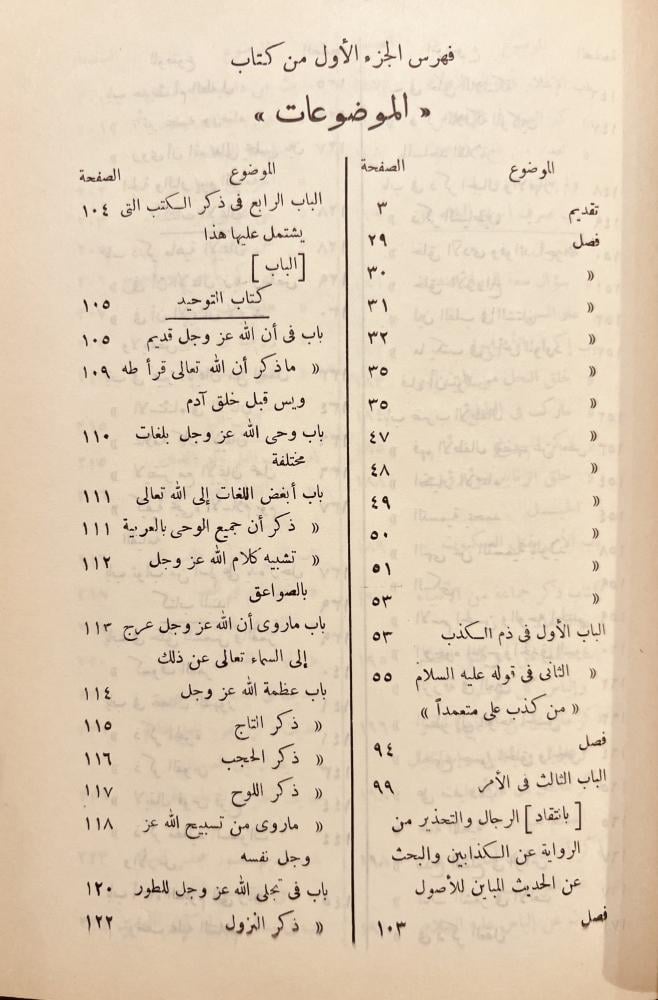 فهرس الجزء الأول من كتاب
« الموضوعات »
الموضوع الصفحة
تقديم ٣
فصل ٢٩
» ٣٠
» ٣١
» ٣٢
» ٣٥
» ٣٥
» ٤٧
» ٤٨
» ٤٩
» ٥٠
» ٥١
» ٥٣
الباب الأول فى ذم الكذب ٥٣
» الثانى فى قوله عليه السلام ٥٥
« من كذب على متعمداً »
فصل ٩٤
الباب الثالث فى الأمر ٩٩
[ بانتقاد ] الرجال والتحذير من
الرواية عن الكذابين والبحث
عن الحديث المباين للأصول
فصل ١٠٣
الموضوع الصفحة
الباب الرابع فى ذكر الكتب التى ١٠٤
يشتمل عليها هذا
[ الباب ]
كتاب التوحيد ١٠٥
باب فى أن الله عز وجل قديم ١٠٥
» ماذكر أن الله تعالى قرأ طه ١٠٩
ويس قبل خلق آدم
باب وحى الله عز وجل بلغات ١١٠
مختلفة
باب أبغض اللغات إلى الله تعالى ١١١
» ذكر أن جميع الوحى بالعربية ١١١
» تشبيه كلام الله عز وجل ١١٢
بالصواعق
باب ماروى أن الله عز وجل عرج ١١٣
إلى السماء تعالى عن ذلك
باب عظمة الله عز وجل ١١٤
» ذكر التاج ١١٥
» ذكر الحجب ١١٦
» ذكر اللوح ١١٧
» ماروى من تسبيح الله عز ١١٨
وجل نفسه
باب فى تجلى الله عز وجل للطور ١٢٠
» ذكر النزول ١٢٢